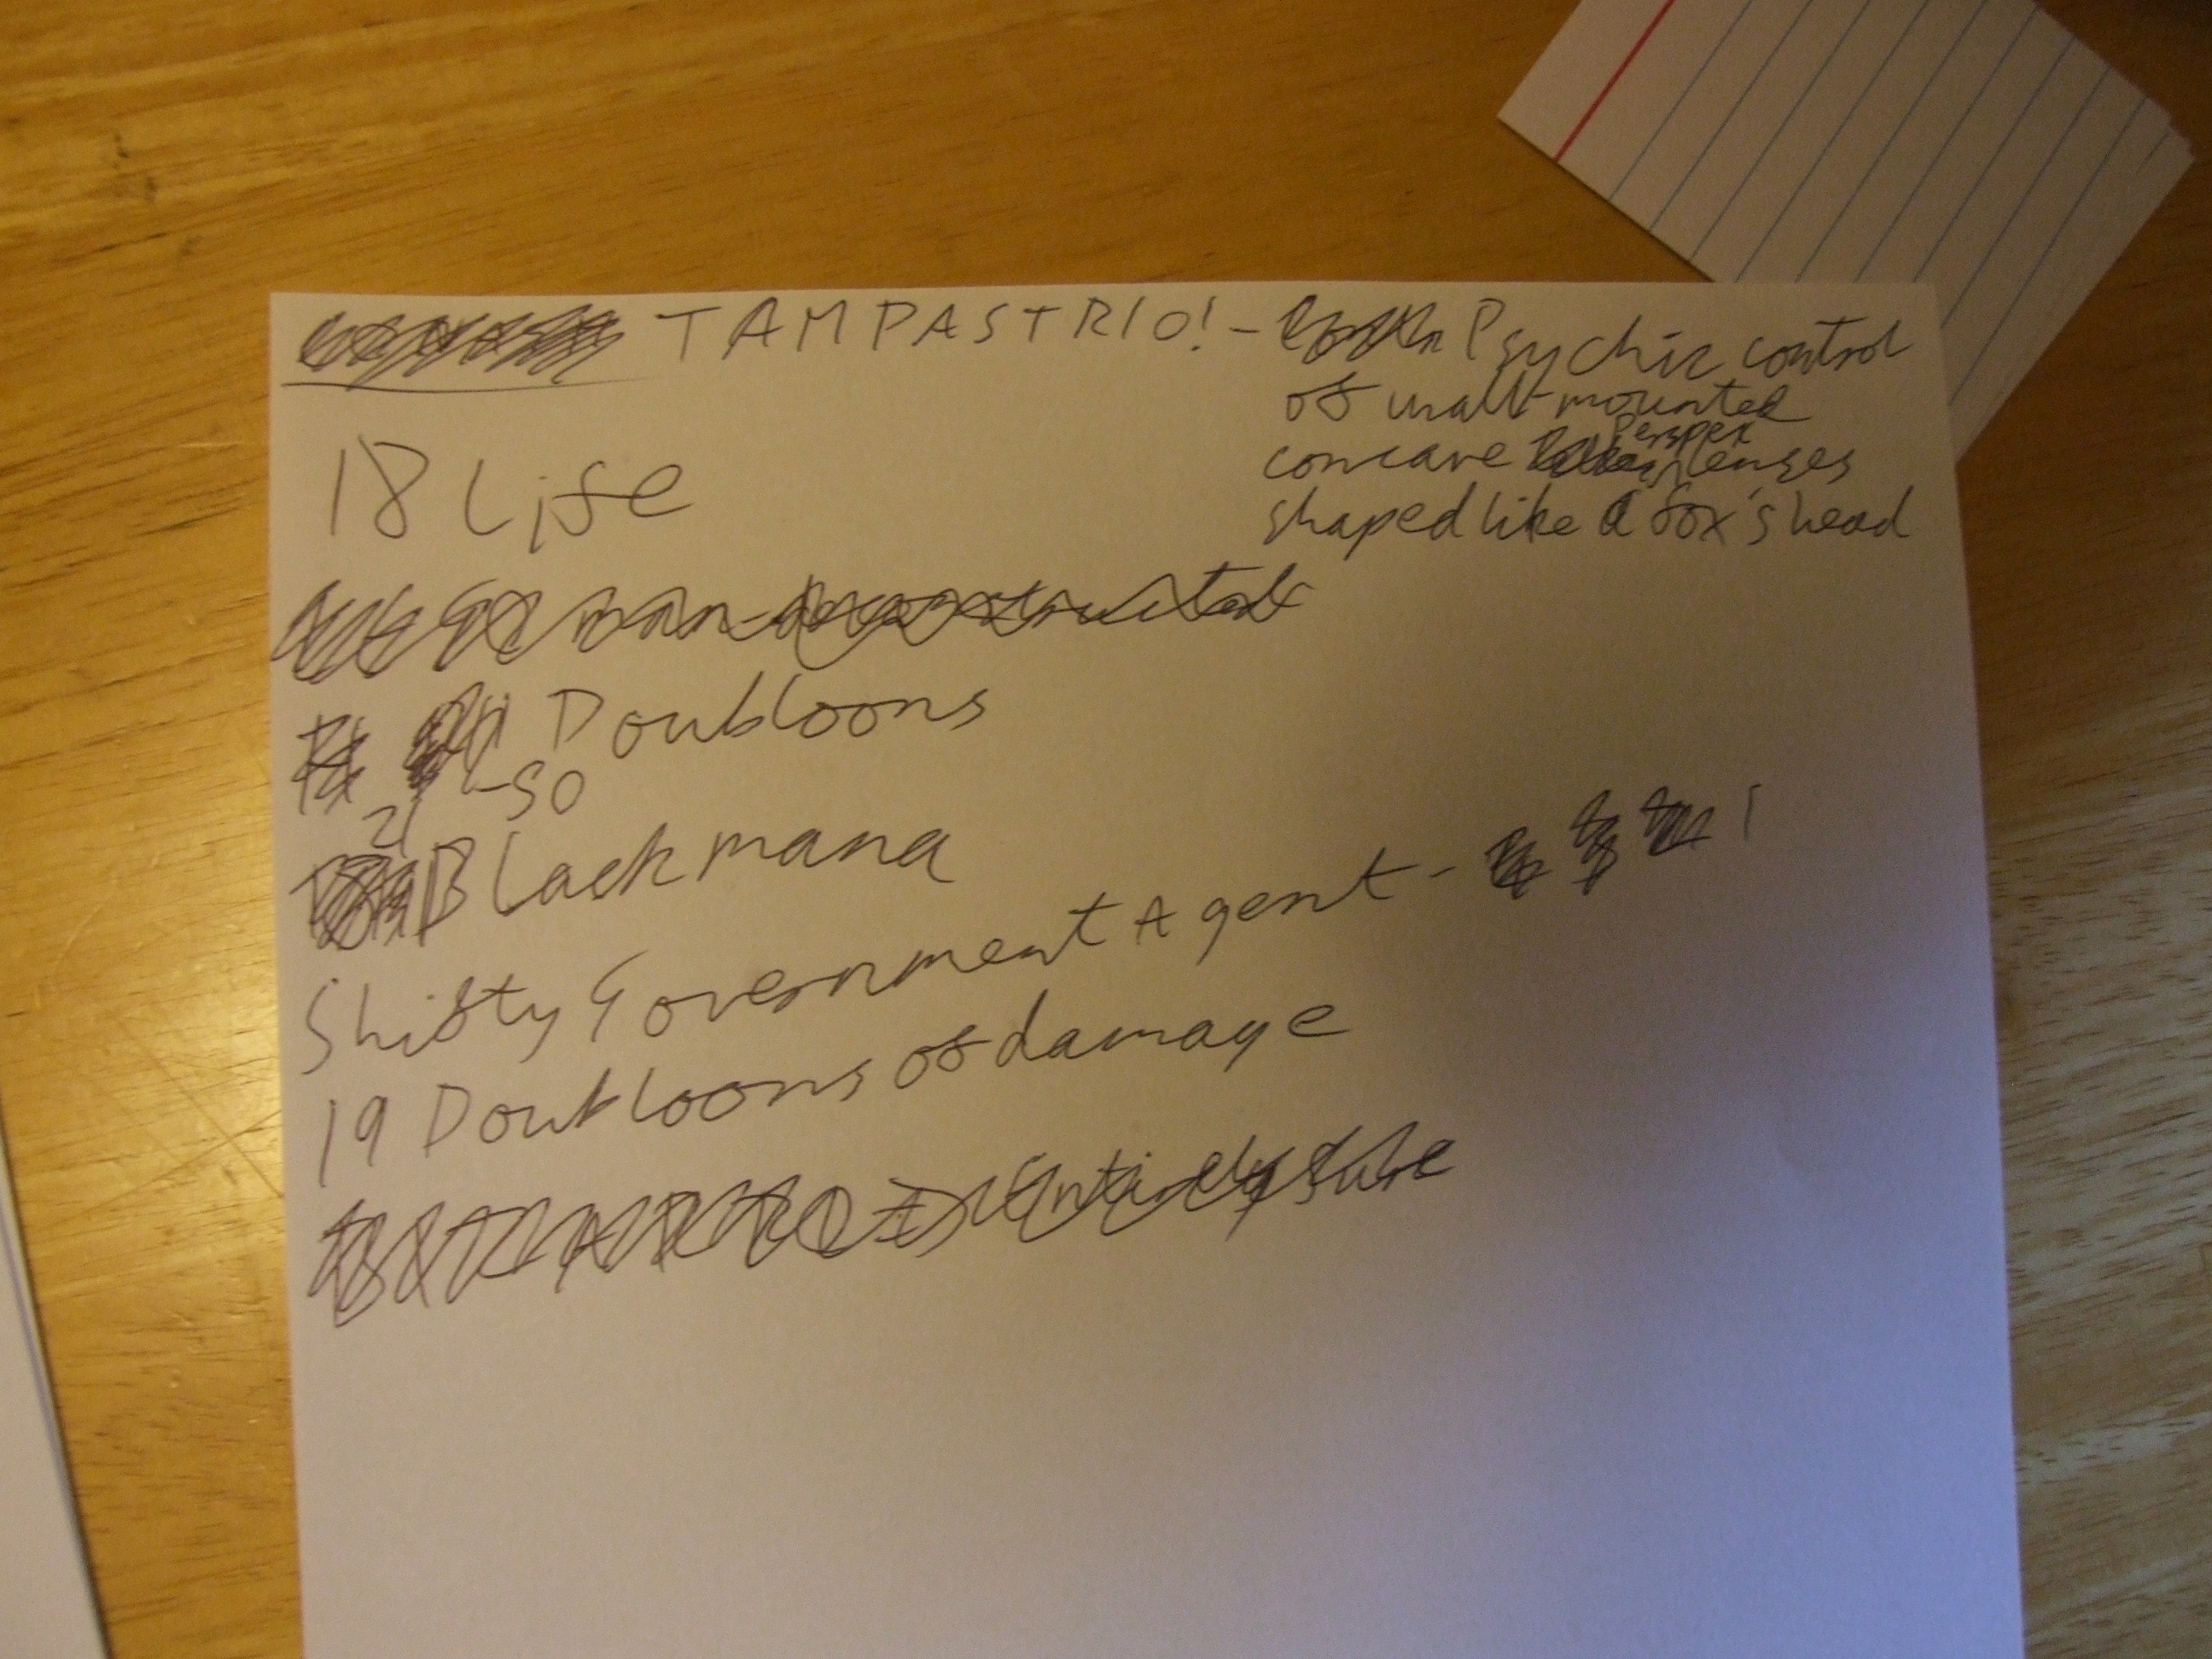 TAMPASTRIO! - Psychic control
of wall-mounted
Perspex
concave lenses
shaped like a fox's head
18 Life
Doubloons
-50
21
Black mana
Shifty Government Agent - 1
19 Doubloons of damage